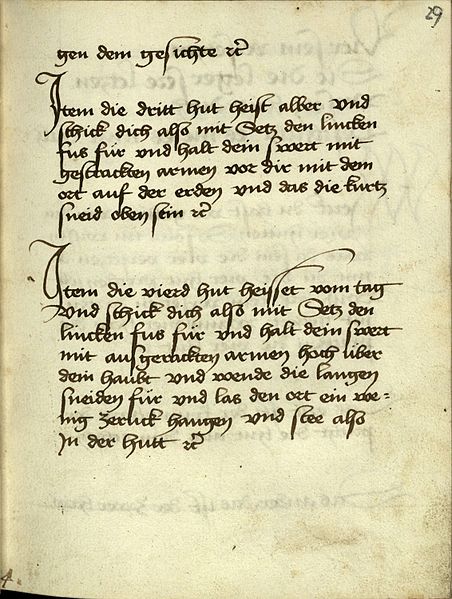 29
gen dem gesichte ꝛc̃
Item die dritt hut heist alber vnd
schick dich also mit Setz den lincken
fus für vnd halt dein swert mit
gestrackten armen vor dir mit dem
ort auf der erden vnd das die kurtz
sneid oben sein ꝛc̃
Item die vierd hut heisset vom tag
vnd schick dich also mit Setz den
lincken fus für vnd halt dein swert
mit ausgerackten armen hoch über
dem haubt vnd wende die langen
sneiden für vnd las den ort ein we-
nig zerück hangen vnd stee also
In der hutt ꝛc̃
4.